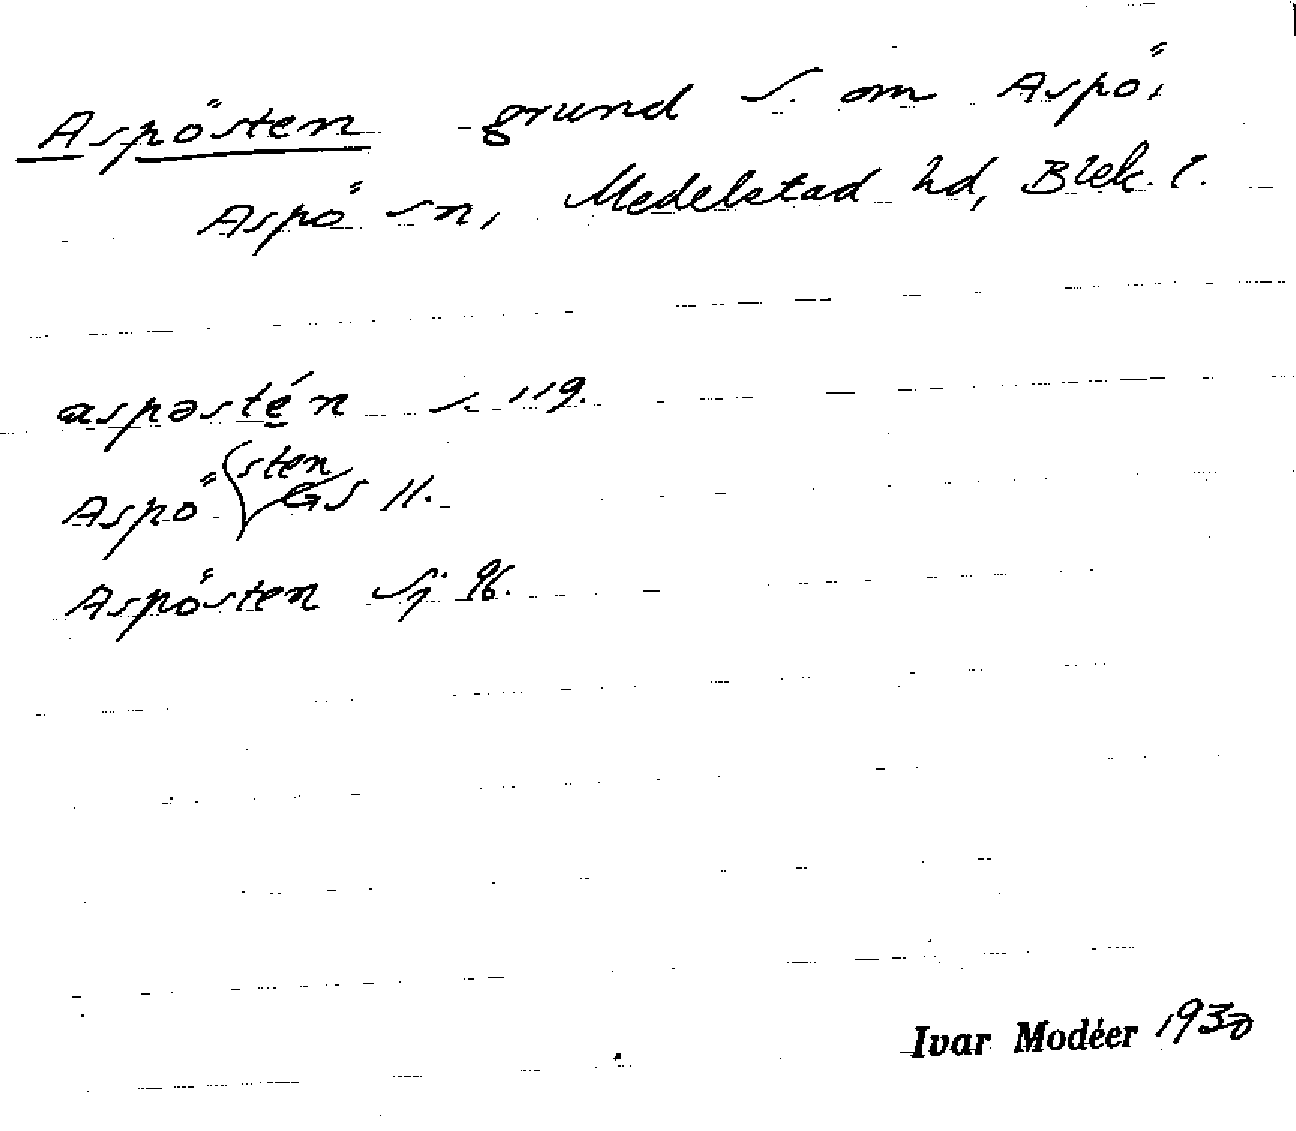 Aspösten grund S. om Aspö,
Aspö sn, Medelstad hd, Blek. l.
aspəsté̱n s. 119.
Aspö sten GS 11.
Aspösten Sj. 96.
Ivar Modéer 1930